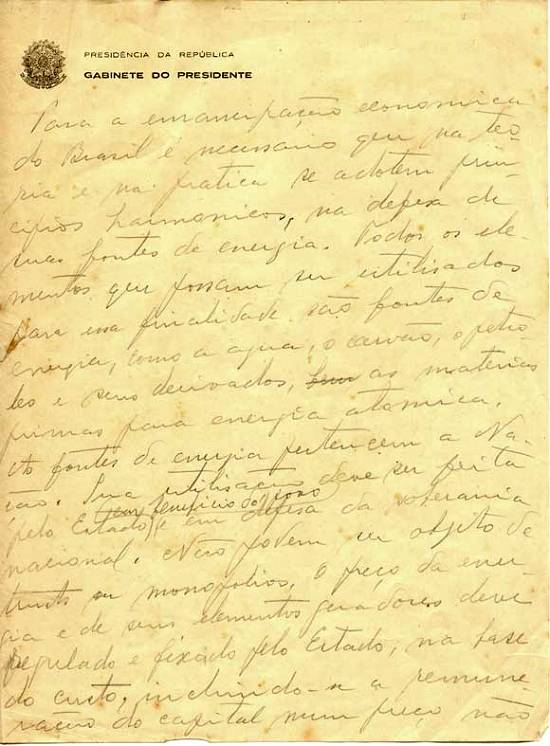 PRESIDÊNCIA DA REPÚBLICA
GABINETE DO PRESIDENTE
Para a emancipação economica
do Brasil é necessario que na teo-
ria e na pratica se adotem prin-
cipios harmonicos, na defesa de
suas fontes de energia. Todos os ele-
mentos que possam ser utilisados
para essa finalidade são fontes de
energia, como a agua, o carvão, o petro-
leo e seus derivados, as materias
primas para energia atomica.
As fontes de energia pertencem a Na-
ção. Sua utilisação deve ser feita
em beneficio do povo
pelo Estado e em defesa da soberania
nacional. Não podem ser objeto de
trusts ou monopolios. O preço da ener-
gia e de seus elementos geradores deve
regulado e fixado pelo Estado, na base
do custo, incluindo-se a remune-
ração do capital num preço não